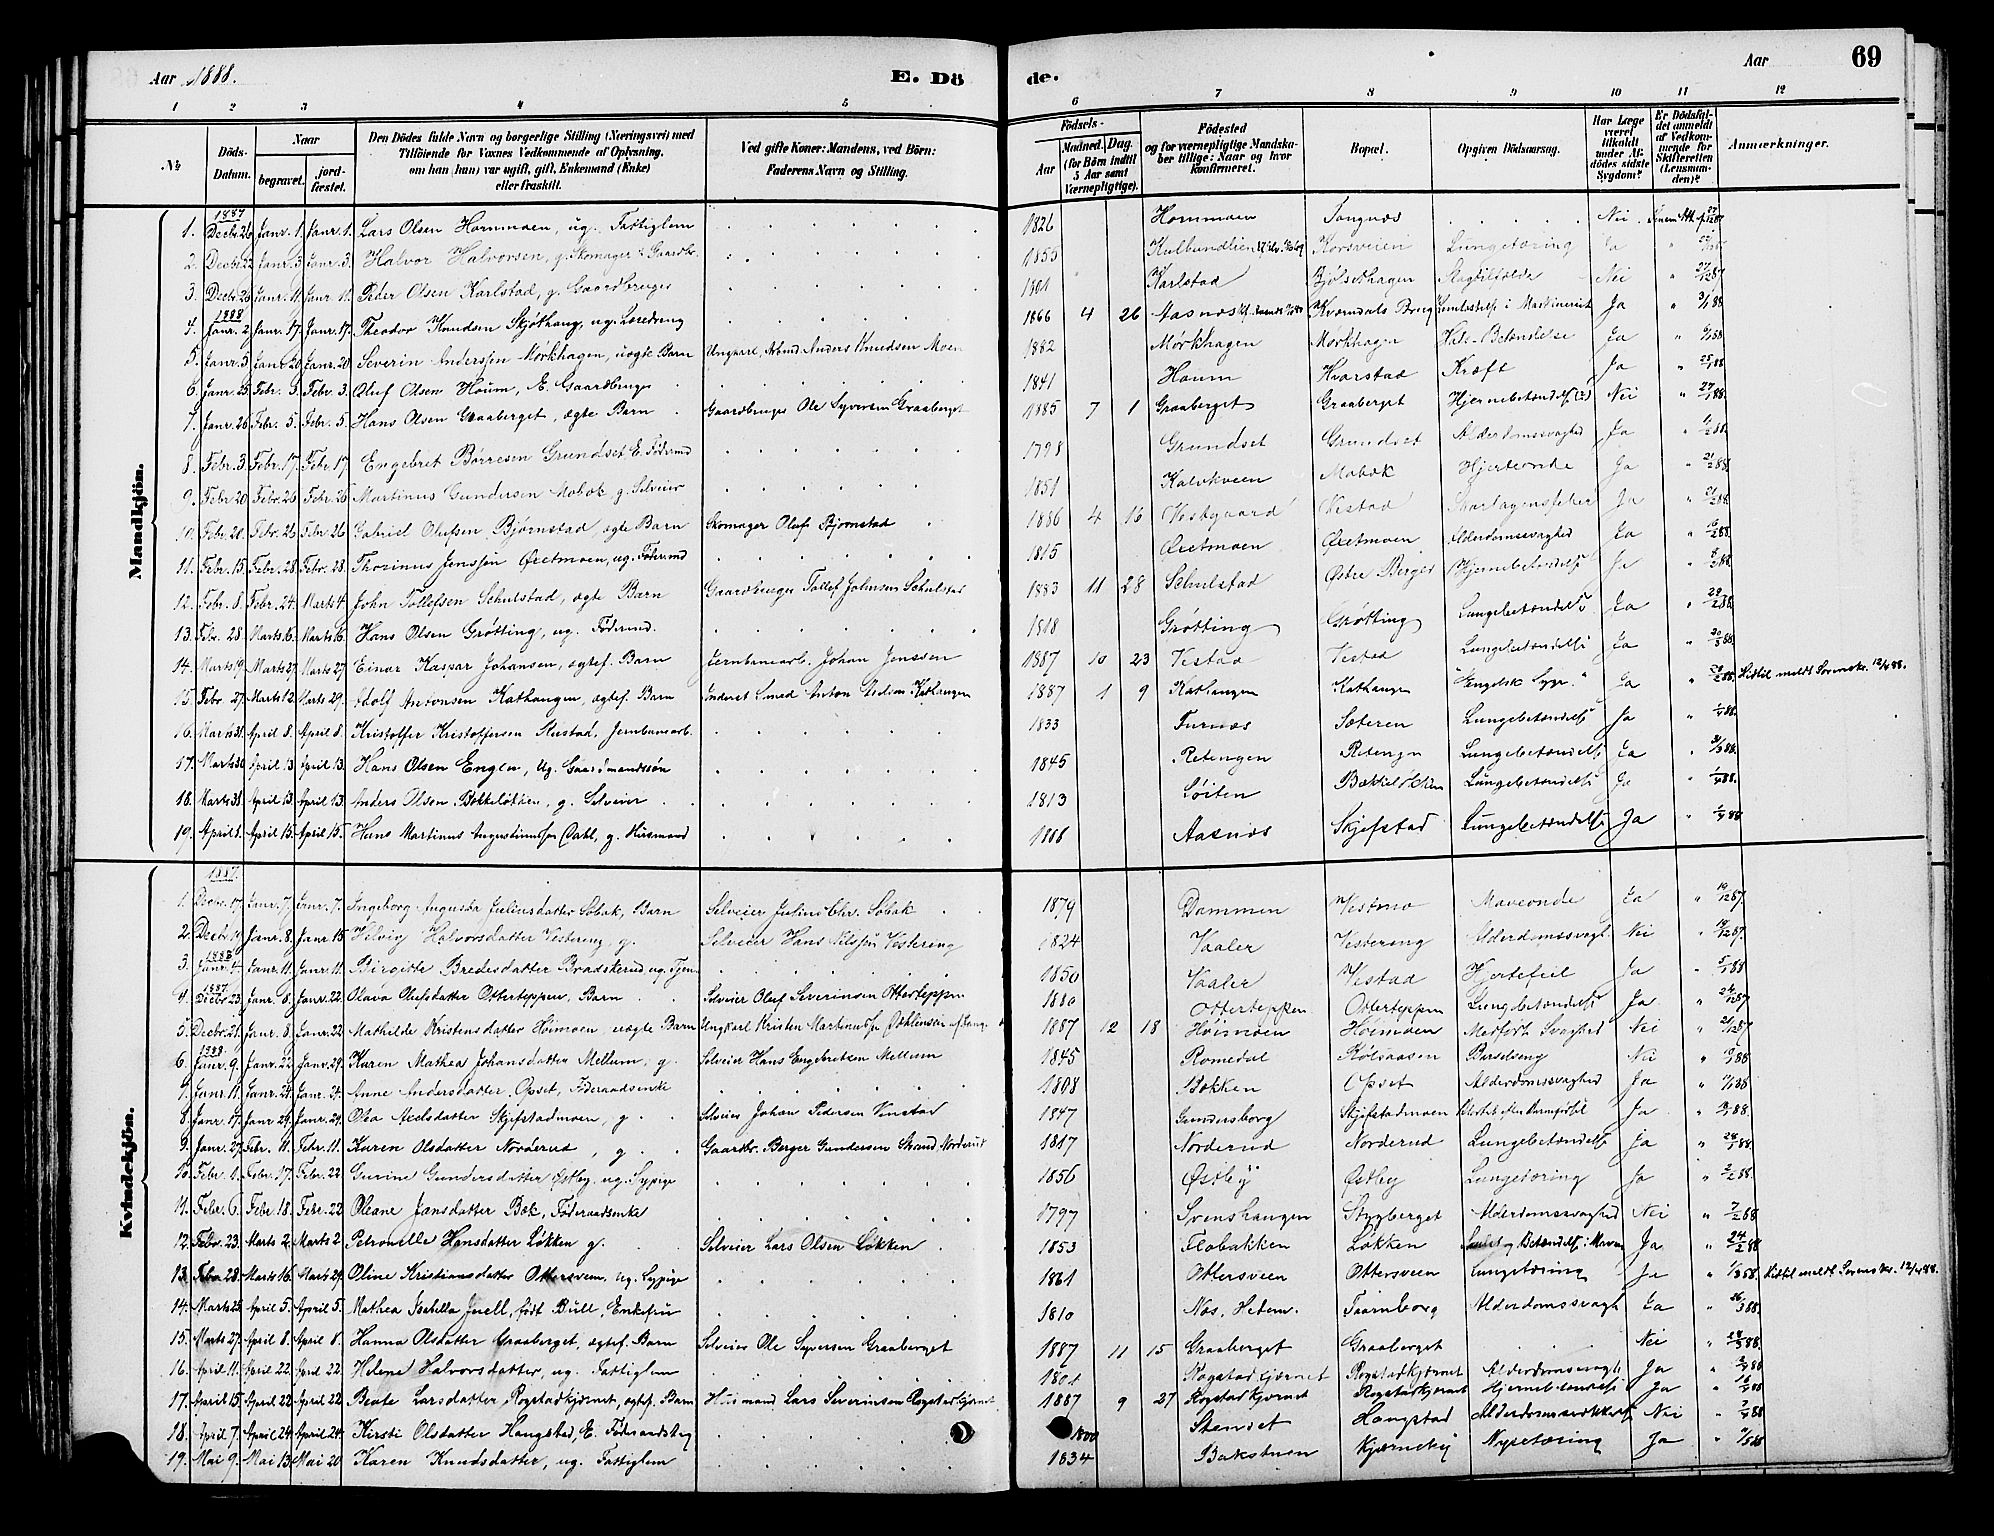 Aar 1888. E. Dö de. Aar 69
1 2 3 4 5 6 7 8 9 10 11 12
№
Döds-Datum.
Naar
begravet.
jord-fæstet.
Den Dödes fulde Navn og borgerlige Stilling (Næringsvei) med
Tilföiende for Voxnes Vedkommende af Oplysning,
om han (hun) var ugift, gift, Enkemand (Enke)
eller fraskilt.
Ved gifte Koner: Mandens, ved Börn:
Faderens Navn og Stilling.
Födsels-
Aar
Maaned. Dag.
(for Börn indtil
5 Aar samt
Værnepligtige).
Födested
og for værnepligtige Mandska-
ber tillige: Naar og hvor
konfirmeret.
Bopæl.
Opgiven Dödsaarsag.
Har Læge
været
tilkaldt
under Af-
dödes sidste
Sygdom?
Er Dödsfal-
det anmeldt
af Vedkom-
mende for
Skifteretten
(Lensman-
den)?
Anmærkninger.
Mandkjön.
1887
1. Decbr. 26 Janr. 1. Janr. 1. Lars Olsen Hornmoen, ug. Fattiglem 1826 Hornmoen Nei
2. Decbr. 22 Janr. 3. Janr. 3. Halvor Halvorsen, g. Skomager & Gaardbr. 1855 Korsveien Lungetæring Ja
3. Decbr. 26 Janr. 11. Janr. 11. Peder Olsen Karlstad, g. Gaardbruger 1801 Karlstad Bjølsethagen Slagtilfælde Nei 27/12 87
1888
4. Janr. 2 Janr. 17. Janr. 17. Theodor Knudsen Skjøthaug, ug. 1866 4 26 Aasnes Kværndals Brug Ja 3/1 88
5. Janr. 3 Janr. 20 Janr. 20 Severin Anderssen Mørkhagen, uægte Barn Ungkarl, Arbmd Anders Knudsen Moen 1882 Mørkhagen Mørkhagen Hals-Betændelse Ja
6. Janr. 25 Febr. 3. Febr. 3. Oluf Olsen Houm, E. Gaardbruger 1841 Houm Hvarstad Kræft Ja 25/1 88
7. Janr. 26 Febr. 5. Febr. 5. Hans Olsen Graaberget, ægte Barn Gaardbruger Ole Syversen Graaberget 1885 7 1 Graaberget Graaberget Hjernebetændelse (?) Nei 27/1 88
8. Febr. 3. Febr. 17. Febr. 17. Engebret Børresen Grundset E. Fødermd 1798 Grundset Grundset Alderdomssvaghed Ja
9. Febr. 20 Febr. 26 Febr. 26 Martinus Gundersen Mobæk g. Selveier 1851 Kalvkveen Mobæk Hjerteonde Ja 21/2 88
10. Febr. 20. Febr. 26 Febr. 26 Gabriel Olufsen Bjørnstad, ægte Barn Skomager Oluf Bjørnstad 1886 4 16 Vestgaard Vestad Skarlagensfeber Ja
11. Febr. 15. Febr. 28. Febr. 28. Thorinus Jenssen Øretmoen, ug. Føderaad 1815 Øretmoen Øretmoen Alderdomssvaghed Ja 16/2 88
12. Febr. 8. Febr. 24. Marts 4. John Tollefsen Schulstad, ægte Barn Gaardbruger Tollef Johnsen Schulstad 1883 11 28 Schulstad Østre Berger Hjernebetændelse Ja
13. Febr. 28. Marts 16. Marts 16. Hans Olsen Grøtting, ug. Føderaad. 1818 Grøtting Grøtting Lungebetændelse Ja 29/2 88
14. Marts 19. Marts 27. Marts 27. Einar Kaspar Johansen, ægtef. Barn Jernbanearb. Johan Jenssen 1887 10 23 Vestad Vestad Lungebetændelse Ja 20/3 88
15. Febr. 27. Marts 12. Marts 29. Adolf Antonsen Kathaugen, ægtef. Barn Inderst Smed Anton Kathaugen 1887 1 9 Kathaugen Kathaugen "Engelsk Syge." Ja 12/4 88.
16. Marts 31. April 8. April 8. Kristoffer Kristoffersen Stustad, Jernbanearb. 1833 Furnæs Sæteren Lungebetændelse Ja 1/4 88
17. Marts 30 April 13. April 13. Hans Olsen Engen, ug. Gaardmandssøn 1845 Retengen Retengen Lungebetændelse Ja 31/3 88
18. Marts 31. April 13. April 13. Anders Olsen Bækkeløkken, g. Selveier 1813 Løiten Bækkeløkken Lungebetændelse Ja 1/4 88.
19. April 1. April 15. April 15. Hans Martinus Augustinussen Dahl, g. Husmand Aasnæs Skjefstad Lungebetændelse Ja 1/4 88
Kvindekjön.
1887.
1. Decbr. 17. Janr. 7. Janr. 7. Ingeborg Augusta Juliusdatter Søbak, Barn Selveier Julius Chr. Søbak 1879 Dammen Vestmo Maveonde Ja 19/12 87.
2. Decbr. Janr. 8. Janr. 15 Helvig Halvorsdatter Vestereng, g. Selveier Hans Nilssen Vestereng 1824 Vaaler Vestereng Alderdomssvagh. Nei
1888
3. Janr. 4. Janr. 11. Janr. 11. Birgitte Bredesdatter Bradskerud, ug. Tjen. 1850 Vaaler Vestad Hjertefeil Ja 5/1 88
1887
4. Decbr. 23. Janr. 8. Janr. 22. Olava Olufsdatter Otterteppen, Barn Selveier Oluf Severinsen Otterteppen 1880 Otterteppen Otterteppen Lungebetændelse Ja 24/12 87
5. Decbr. 21. Janr. 8. Janr. 22 Mathilde Kristensdatter Høimoen, uægte Barn Ungkarl Kristen Martinussen 1887 12 18 Høimoen Høimoen Medfødt Svaghed Nei 21/12 87
1888.
6. Janr. 9. Janr. 22 Janr. 29. Karen Mathea Johansdatter Mellum, g. Selveier Hans Engebretsen Mellum 1845 Romedal Kølsaasen Barselseng Nei
7. Janr. 11. Janr. 24. Janr. 24. Anne Andersdatter Opset, Føderaadsenke 1808 Bakken Opset Alderdomssvaghed Ja
8. Janr. 17. Janr. 29. Janr. 29. Olea Axelsdatter Skjefstadmoen, g. Selveier Johan Pedersen 1847 Gundersborg Skjefstadmoen Ja
9. Janr. 27. Febr. 11. Febr. 11. Karen Olsdatter Norderud, g. Gaardbr. Berger Gundersen Strand Norderud 1817 Norderud Norderud Lungebetændelse Ja 28/1 88.
10. Febr. 1. Febr. 17. Febr. 22. Gurine Gundersdatter Østby, ug. Sypige 1856 Østby Østby Lungetæring Ja 2/2 88.
11. Febr. 6. Febr. 18. Febr. 22 Oleane Jansdatter Bæk, Føderaadsenke 1797 Svenshaugen Stygberget Alderdomssvaghed Nei 7/2 88
12. Febr. 23. Marts 2. Marts 2 Petronelle Hansdatter Løkken g. Selveier Lars Olsen Løkken 1853 Flobakken Løkken og Betændelse i Maven Ja 24/2 88
13. Febr. 28. Marts 16. Marts 29. Oline Kristiansdatter Ottersveen, ug. Sypige 1861 Ottersveen Ottersveen Lungetæring Ja 1/3 88. 12/4 88.
14. Marts 25. April 5. April 5. Mathea Isabella Juell, født Bull, Enkefru 1810 Nes, Hedem. Taarnborg Alderdomssvagh. Ja 26/3 88.
15. Marts 27. April 8. April 8. Hanna Olsdatter Graaberget, ægtef. Barn Selveier Ole Syversen Graaberget 1887 11 15 Graaberget Graaberget Nei 28/3 88.
16. April 11. April 22. April 22. Helene Halvorsdatter, ug. Fattiglem 1801 Rogstadkjernet Rogstadkjernet Alderdomssvagh. Ja
17. April 15. April 22 April 22 Beate Larsdatter Rogstadkjernet, ægtef. Barn Husmand Lars Severinsen Rogstadkjernet 1887 9 27 Rogstadkjernet Rogstadkjernet Hjernebetændelse Ja 16/4 88
18. April 7. April 24. April 24. Kirsti Olsdatter Haugstad, E. 1800 Stendet Haugstad Nei
19. Mai 9. Mai 13. Mai 20 Karen Knudsdatter, ug. Fattiglem 1834 Bakstuen Kjærnsby Nyretæring Ja